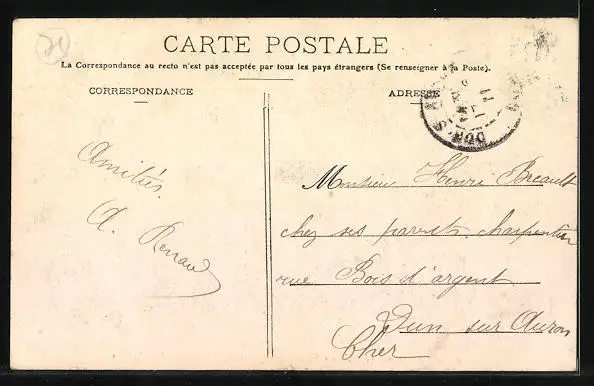 CARTE POSTALE
La Correspondance au recto n'est pas acceptée par tous les pays étrangers (Se renseigner à la Poste).
CORRESPONDANCE
ADRESSE
DUN-S-AURON
Amitiés
A. Renaud
Monsieur Henri Breault
chez ses parents charpentier
rue Bois d'argent
Dun sur Auron
Cher